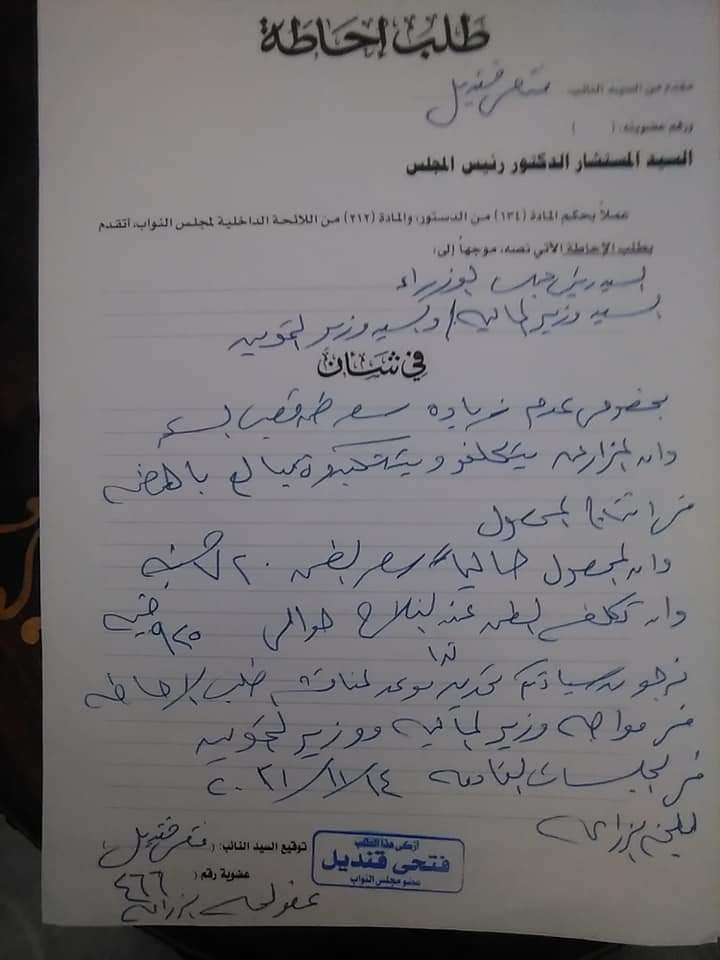 طلب إحاطة
مقدم من السيد النائب: فتحى قنديل
ورقم عضويته: ( )
السيد المستشار الدكتور رئيس المجلس
عملاً بحكم المادة (١٣٤) من الدستور، والمادة (٢١٢) من اللائحة الداخلية لمجلس النواب، أتقدم
بطلب الإحاطة الآتي نصه، موجهاً إلى:
السيد رئيس مجلس الوزراء
السيد وزير المالية / والسيد وزير التموين
في شأن
بخصوص عدم زيادة سعر طن قصب السكر
وان المزارعين يتكلفو مبالغ باهضه
فى انتاج المحصول
وان المحصول حاليا سعر الطن ٧٢٠ جنيه
وان تكلفه الطن عند الفلاح حوالى ٩٢٥ جنيه
نرجو من سيادتكم تحديد موعد لمناقشه طلب الاحاطه
فى مواجهه وزير الماليه ووزير التموين
فى الجلسات القادمه ١٤ / ١١ / ٢٠٢١
توقيع السيد النائب: ( فتحى قنديل
عضوية رقم ( ٤٦٦
أزكى هذا الطلب
فتحى قنديل
عضو مجلس النواب